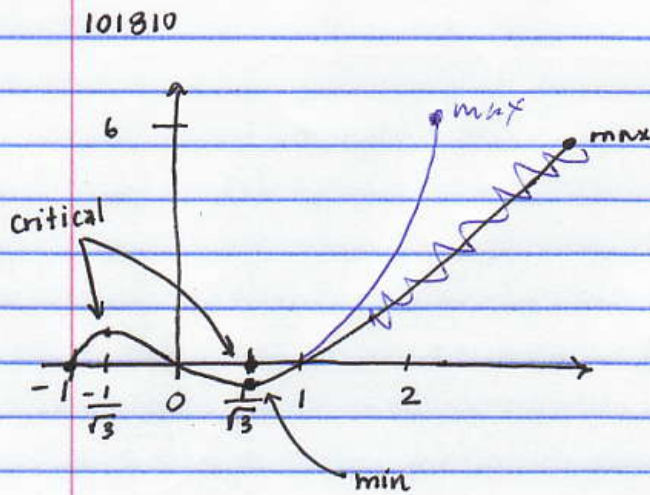 101810
max
6
max
critical
-1
-1/√3
0
1/√3
1
2
min